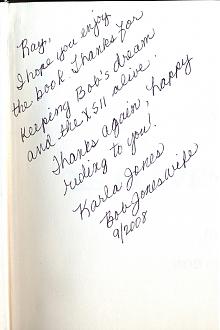 Ray,
I hope you enjoy
the book. Thanks for
keeping Bob's dream
and the XS11 alive.
Thanks again, happy
riding to you!
Karla Jones
Bob Jones wife
9/2008